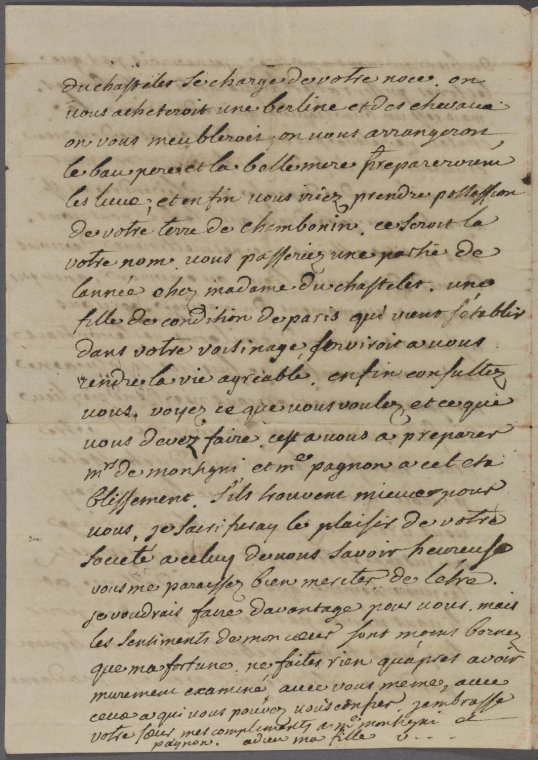 du chastelet se charge de votre noce. on
vous acheteroit une berline et des chevaux
on vous meubleroit, on vous arrangeroit,
le bau pere et la belle mere prepareroient
les lieux, et enfin vous iriez prendre possession
de votre terre de chambonin. ce seroit la
votre nom. vous passeriez une partie de
lannée chez madame du chastelet. une
fille de condition de paris qui vient s'établir
dans votre voisinage, serviroit a vous
rendre la vie agreable. enfin consultez
vous. voyez ce que vous voulez et ce que
vous devez faire. cest a vous a preparer
mrs de montigni et me pagnon a cet eta
blissement. s'ils trouvent mieux pour
vous, je sacrifieray le plaisir de votre
societé a celuy de vous savoir heureuse
vous me paraissez bien meriter de letre.
je voudrais faire davantage pour vous. mais
les sentiments de mon cœur sont moins bornez
que ma fortune. ne faites rien qu'apres avoir
murement examiné, avec vous meme, avec
ceux a qui vous pouvez vous confier. jembrasse
votre sœur mes compliments a mr montigni et
pagnon. adieu ma fille V....